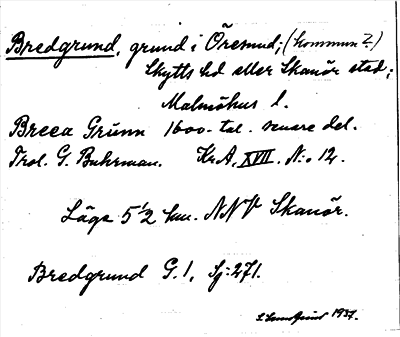 Bredgrund, grund i Öresund; (kommun?)
Skytts hd eller Skanör stad;
Malmöhus l.
Breea Grünn 1600-tal. senare del.
Trol. G. Buhrman. Kr.A. XVII. N:o 12.
Läge 5 1/2 km. NNV Skanör.
Bredgrund G.1, Sj:271.
1937.